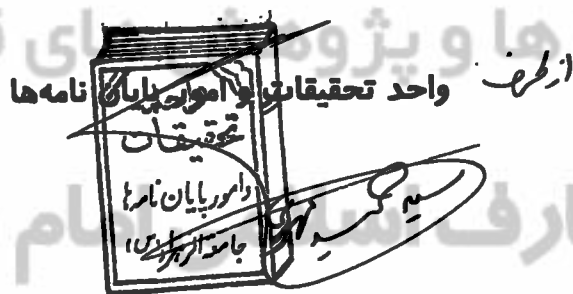 ها و پژوهش‌های
از طرف واحد تحقیقات و امور پایان نامه‌ها
تحقیقات
و امور پایان نامه‌ها
جامعة الزهراء
سید
امام